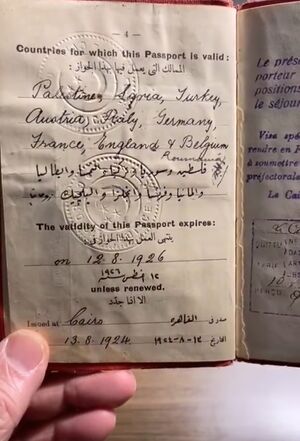 - 4 -
Countries for which this Passport is valid :
الممالك التى يعمل فيها بهذا الجواز :
Palestine, Syria, Turkey,
Austria, Italy, Germany,
France, England & Belgium
Roumania
فلسطين وسوريا وتركيا والنمسا وايطاليا
والمانيا وفرنسا وانجلترا والبلجيك رومانيا
The validity of this Passport expires:
ينتهى العمل بهذا الجواز فى :
on 12.8.1926
١٢ اغسطس سنة ١٩٢٦
unless renewed.
الا اذا جدد
Issued at Cairo
صدر فى القاهرة
13.8.1924
التاريخ ١٣-٨-١٩٢٤
Le prése
porteur
positions
le séjou
Visa spé
rendre en F
à soumettre
préfectorale
Le Cai